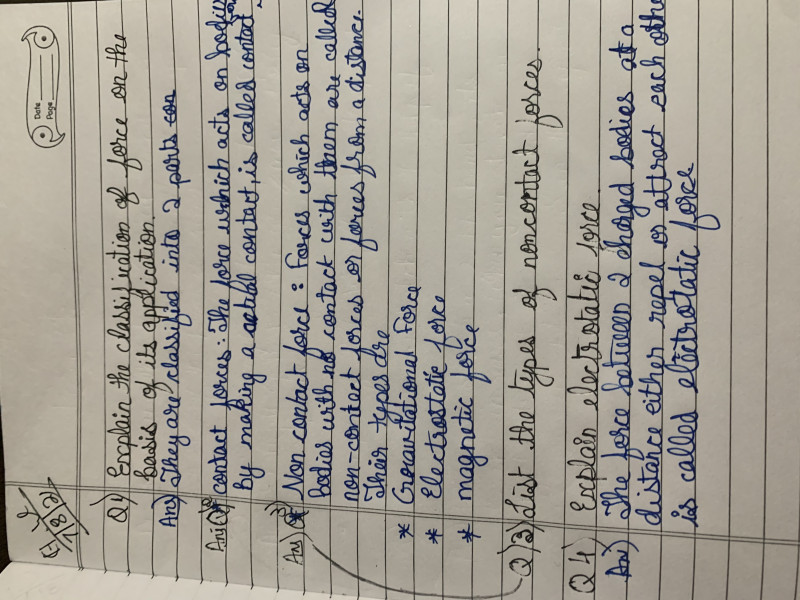 Date
Page
Q1) Explain the classification of force on the
basis of its application.
Ans) They are classified into 2 parts
contact forces: The force which acts on bodies
by making a actual contact, is called contact
Ans) Non contact force: Forces which acts on
bodies with no contact with them are called
non-contact forces or forces from a distance.
Their types are
* Gravitational Force
* Electrostatic force
* magnetic force
Q)3) List the types of noncontact forces.
Q4) Explain electrotatic force.
Ans) The force between 2 charged bodies at a
distance either repel or attract each other
is called electrotatic force